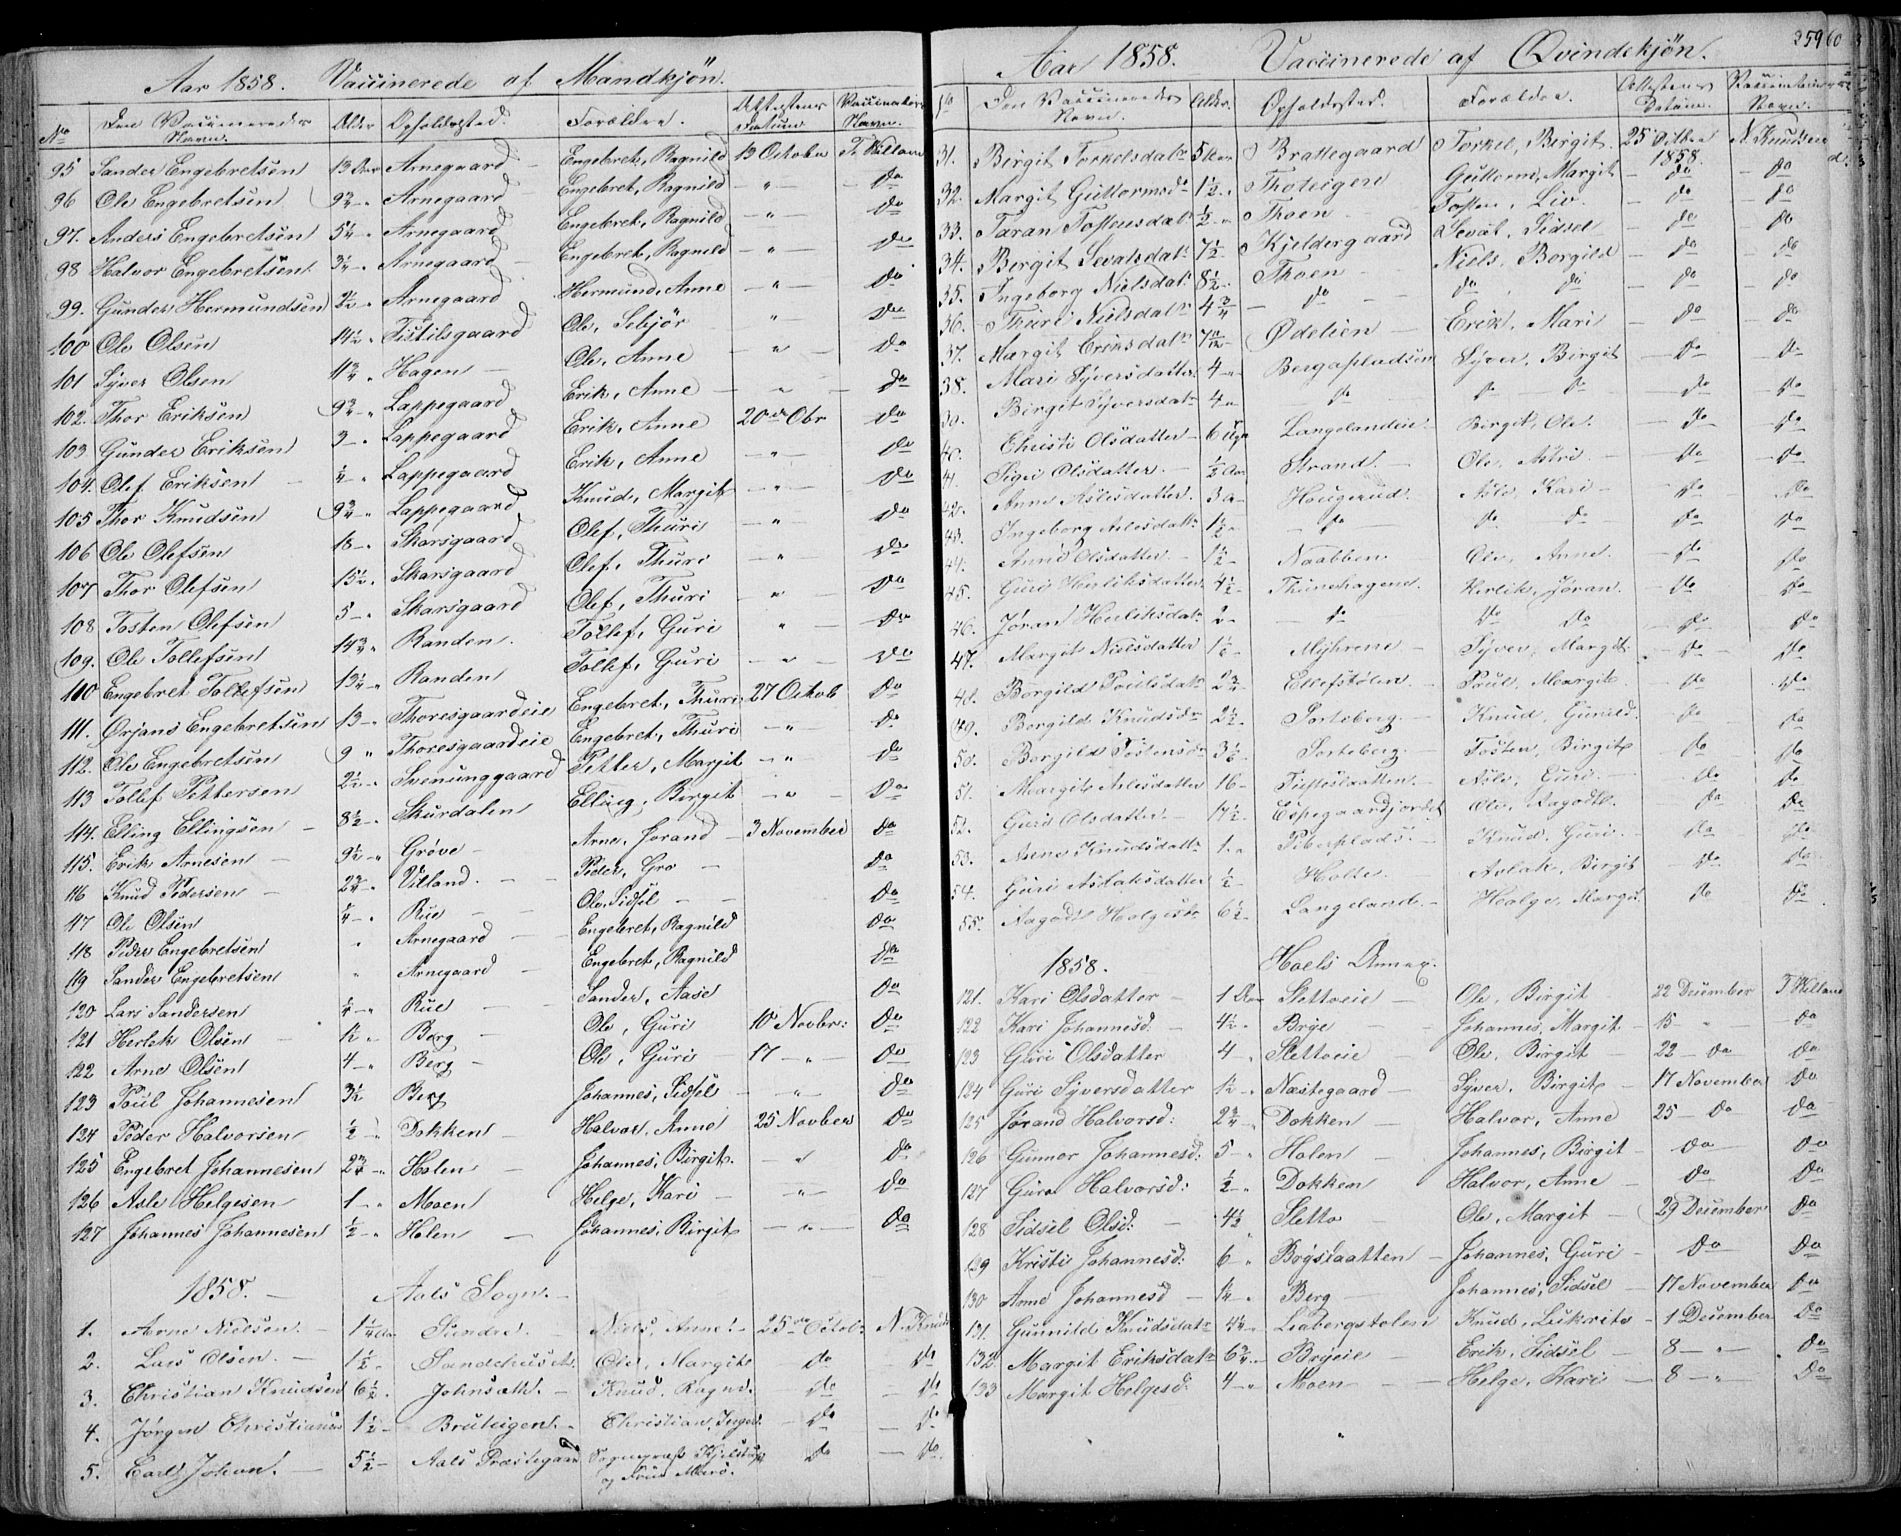 Aar 1858. Vaccinerede af Mandkjön.
No Den Vaccineredes Navn. Alder Opholdssted. Forældre. Attestens Datum Vaccinatörs Navn.
95 Sander Engebretsen 13 Aar Arnegaard Engebret, Ragnild 13 October T. Villand
96 Ole Engebretsen 9 3/4 Arnegaard Engebret, Ragnild — " — Do
97. Anders Engebretsen 5 1/4 Arnegaard Engebret, Ragnild — " — Do
98 Halvor Engebretsen 3 1/4 Arnegaard Engebret, Ragnild — " — Do
99. Gunder Hermundsen 2 1/2 Arnegaard Hermund, Anne — " — Do
100 Ole Olsen 14 1/2 Tistilsgaard Ole, Sebjör " — Do
101 Syver Olsen 11 3/4 Hagen — Ole, Anne " — Do
102. Thor Eriksen 9 3/4 Lappegaard Erik, Anne — " — Do
103 Gunder Eriksen 3 — Lappegaard Erik, Anne 20de Obr Do
104. Olef Eriksen — 1/4 Lappegaard Erik, Anne — " — Do
105 Thor Knudsen 9 3/4 Lappegaard Knud, Margit — " — Do
106 Ole Olefsen 18 — Skarsgaard Olef, Thuri " — Do
107 Thor Olefsen 15 1/2 Skarsgaard Olef, Thuri " — Do
108 Tosten Olefsen 5 — Skarsgaard Olef, Thuri — " — Do
109. Ole Tollefsen 14 3/4 Randen. Tollef, Guri " — Do
110 Engebret Tollefsen 13 1/4 Randen Tollef, Guri — " — Do
111. Örjans Engebretsen 13 — Thoresgaardeie Engebret, Thuri 27 Octob Do
112. Ole Engebretsen 9 " Thoresgaardeie Engebret, Thuri — " — Do
113 Tollef Pettersen 2 1/2 Svensunggaard Petter, Margit — " — Do
114. Elling Ellingsen — 8 1/2 Skurdalen Elling, Birgit — " — Do
115. Erik Arnesen — 9 1/2 Gröve — Arne, Jorand — 3 November Do
116 Knud Pedersen — 2 3/4 Villand. — Peder, Gro — Do
117 Ole Olsen 1/4 Rue — Ole, Sidsel — Do
118 Peder Engebretsen " Arnegaard — Engebret, Ragnild Do
119 Sander Engebretsen " Arnegaard — Engebret, Ragnild Do
120 Lars Sandersen 1/4 Rue — Sander, Aase Do
121 Herlek Olsen — 1/2 Berg — Ole, Guri 10 Novbr: Do
122 Arne Olsen 4 Berg — Ole, Guri 17 — " Do
123 Poul Johannesen 3 1/2 Berg Johannes, Sidsel — " — Do
124 Peder Halvorsen 1/2 Dokken — Halvor, Anne 25 Novber Do
125 Engebret Johannesen 2 3/4 Holen — Johannes, Birgit. — " — Do
126 Asle Helgesen 1 — Moen Helge, Kari — — " — Do
127 Johannes Johannesen 1/2 Holen — Johannes, Birgit — " — Do
1858. — Aals Sogn. —
1. Arne Nielsen. 1 1/4 Aar Sundre. Niels, Anne. 25de Octob. N. Knuds
2. Lars Olsen. — 1 1/2 Sandehuset. Ole, Margit Do Do
3. Christian Knudsen 6 1/2 Johnsæth. Knud, Ragni. Do — Do
4. Jörgen Christiansen 1 1/2 Bruteigen. Christian, Inger. — Do — Do
5. Carl Johan. — 5 1/2 Aals Præstegaard Sogneprest Kjelstrup og Frue Marö. Do — Do
Aar 1858. Vaccinerede af Qvindekjön. 259 60
No Den Vaccineredes Navn. Alder. Opholdssted. Forældre. Attestens Datum. Vaccinatörens Navn.
31. Birgit Torkelsdatr 5 Aar Brattegaard Torkel, Birgit 25 Octber 1858. N. Knudsen
32. Margit Guttormsd. 1 1/2 Thoteigen Guttorm, Margit — Do — Do
33. Taran Tostensdatr 1/2 Thoen. Tosten, Liv. — Do Do
34. Bergit Sevalsdatr 7 1/2 Kjeldergaard Seval, Sidsel — Do Do
35. Ingeborg Nielsdatr 8 1/2 Thoen — Niels, Borgild Do Do
36. Thuri Nielsdatr 4 3/4 — Do — Do Do Do Do
37. Margit Eriksdatr 7 Ödelien — Erik, Mari — Do Do
38. Mari Syversdatter 4 — Bergapladsen Syver, Birgit Do Do
39. Birgit Syversdatr 4 Do Do Do Do Do
40. Christi Olsdatter — 6 Uger Langelandeie Birgit, Ole. — Do Do
41. Sigri Olsdatter. — 1/2 Aar Strand. — Ole, Astri — Do Do
42. Anne Aslesdatter. 3 Hougerud Asle, Kari — Do Do
43. Ingeborg Aslesdatr 1 1/2 — Do Do Do Do Do
44. Anne Olsdatter. — 1 1/2 Naabben. Ole, Anne. — Do Do
45. Guri Herliksdatter 4 1/2 Thunehagen Herlik, Jöran. Do Do
46. Jöran Herliksdatr 2 Do Do Do Do Do
47. Margit Nielsdatter 1 1/6 Myhrene — Syver, Margit — Do Do
48. Borgild Poulsdatr 2 3/4 Ellefstölen — Poul, Margit. — Do Do
49. Borgild Knudsdr 2 1/2 Sorteberg. — Knud, Gunild. — Do Do
50. Borgild Tostensdr 3 1/6 Sorteberg. — Tosten, Birgit Do Do
51. Margit Aslesdatter 16 — Asle, Guri. — Do Do
52. Guri Olsdatter. — 14 1/2 Espegaardjordet Ole, Aagodt. Do Do
53. Asene Knudsdatr 1. Piberplads. — Knud, Guri. — Do Do
54. Guri Aslaksdatter 1/2 Holte. Aslak, Birgit — Do Do
55. Aagodt Helgesdr 6 1/2 Langeland. — Helge, Margit. Do Do
1858. Hoels Annex.
121. Kari Olsdatter — 1 Aar Slettoeie Ole, Birgit 22 December T. Villand
122 Kari Johannesd. — 4 1/2 Brye Johannes, Margit. 15 " Do
123 Guri Olsdatter 4 Slettoeie Ole, Birgit — 22 — Do Do
124 Guri Syversdatter 1 1/2 Næstegaard — Syver, Birgit — 17 November Do
125 Jörand Halvorsd: 2 3/4 Dokken — Halvor, Anne 25 — Do Do
126 Gunnor Johannesd: 5 — Holen — Johannes, Birgit — Do Do
127 Guro Halvorsd: 1/2 Dokken Halvor, Anne — Do Do
128 Sidsel Olsd: — 4 1/2 Sletto Ole, Margit — 29 December Do
129 Kristi Johannesd: 6 Bryslaatten — Johannes, Guri — Do Do
130 Anne Johannesd — 1 1/4 Berg — Johannes, Sidsel — 17 November Do
131. Gunnild Knudsdatr 4 1/4 Liabergstolen Knud, Leikrits — 1 December Do
132. Margit Eriksdatr 6 3/4 Bryeie — Erik, Sidsel — 8 — " — Do
133 Margit Helgesd: 4 Moen — Helge, Kari — 8 — " Do